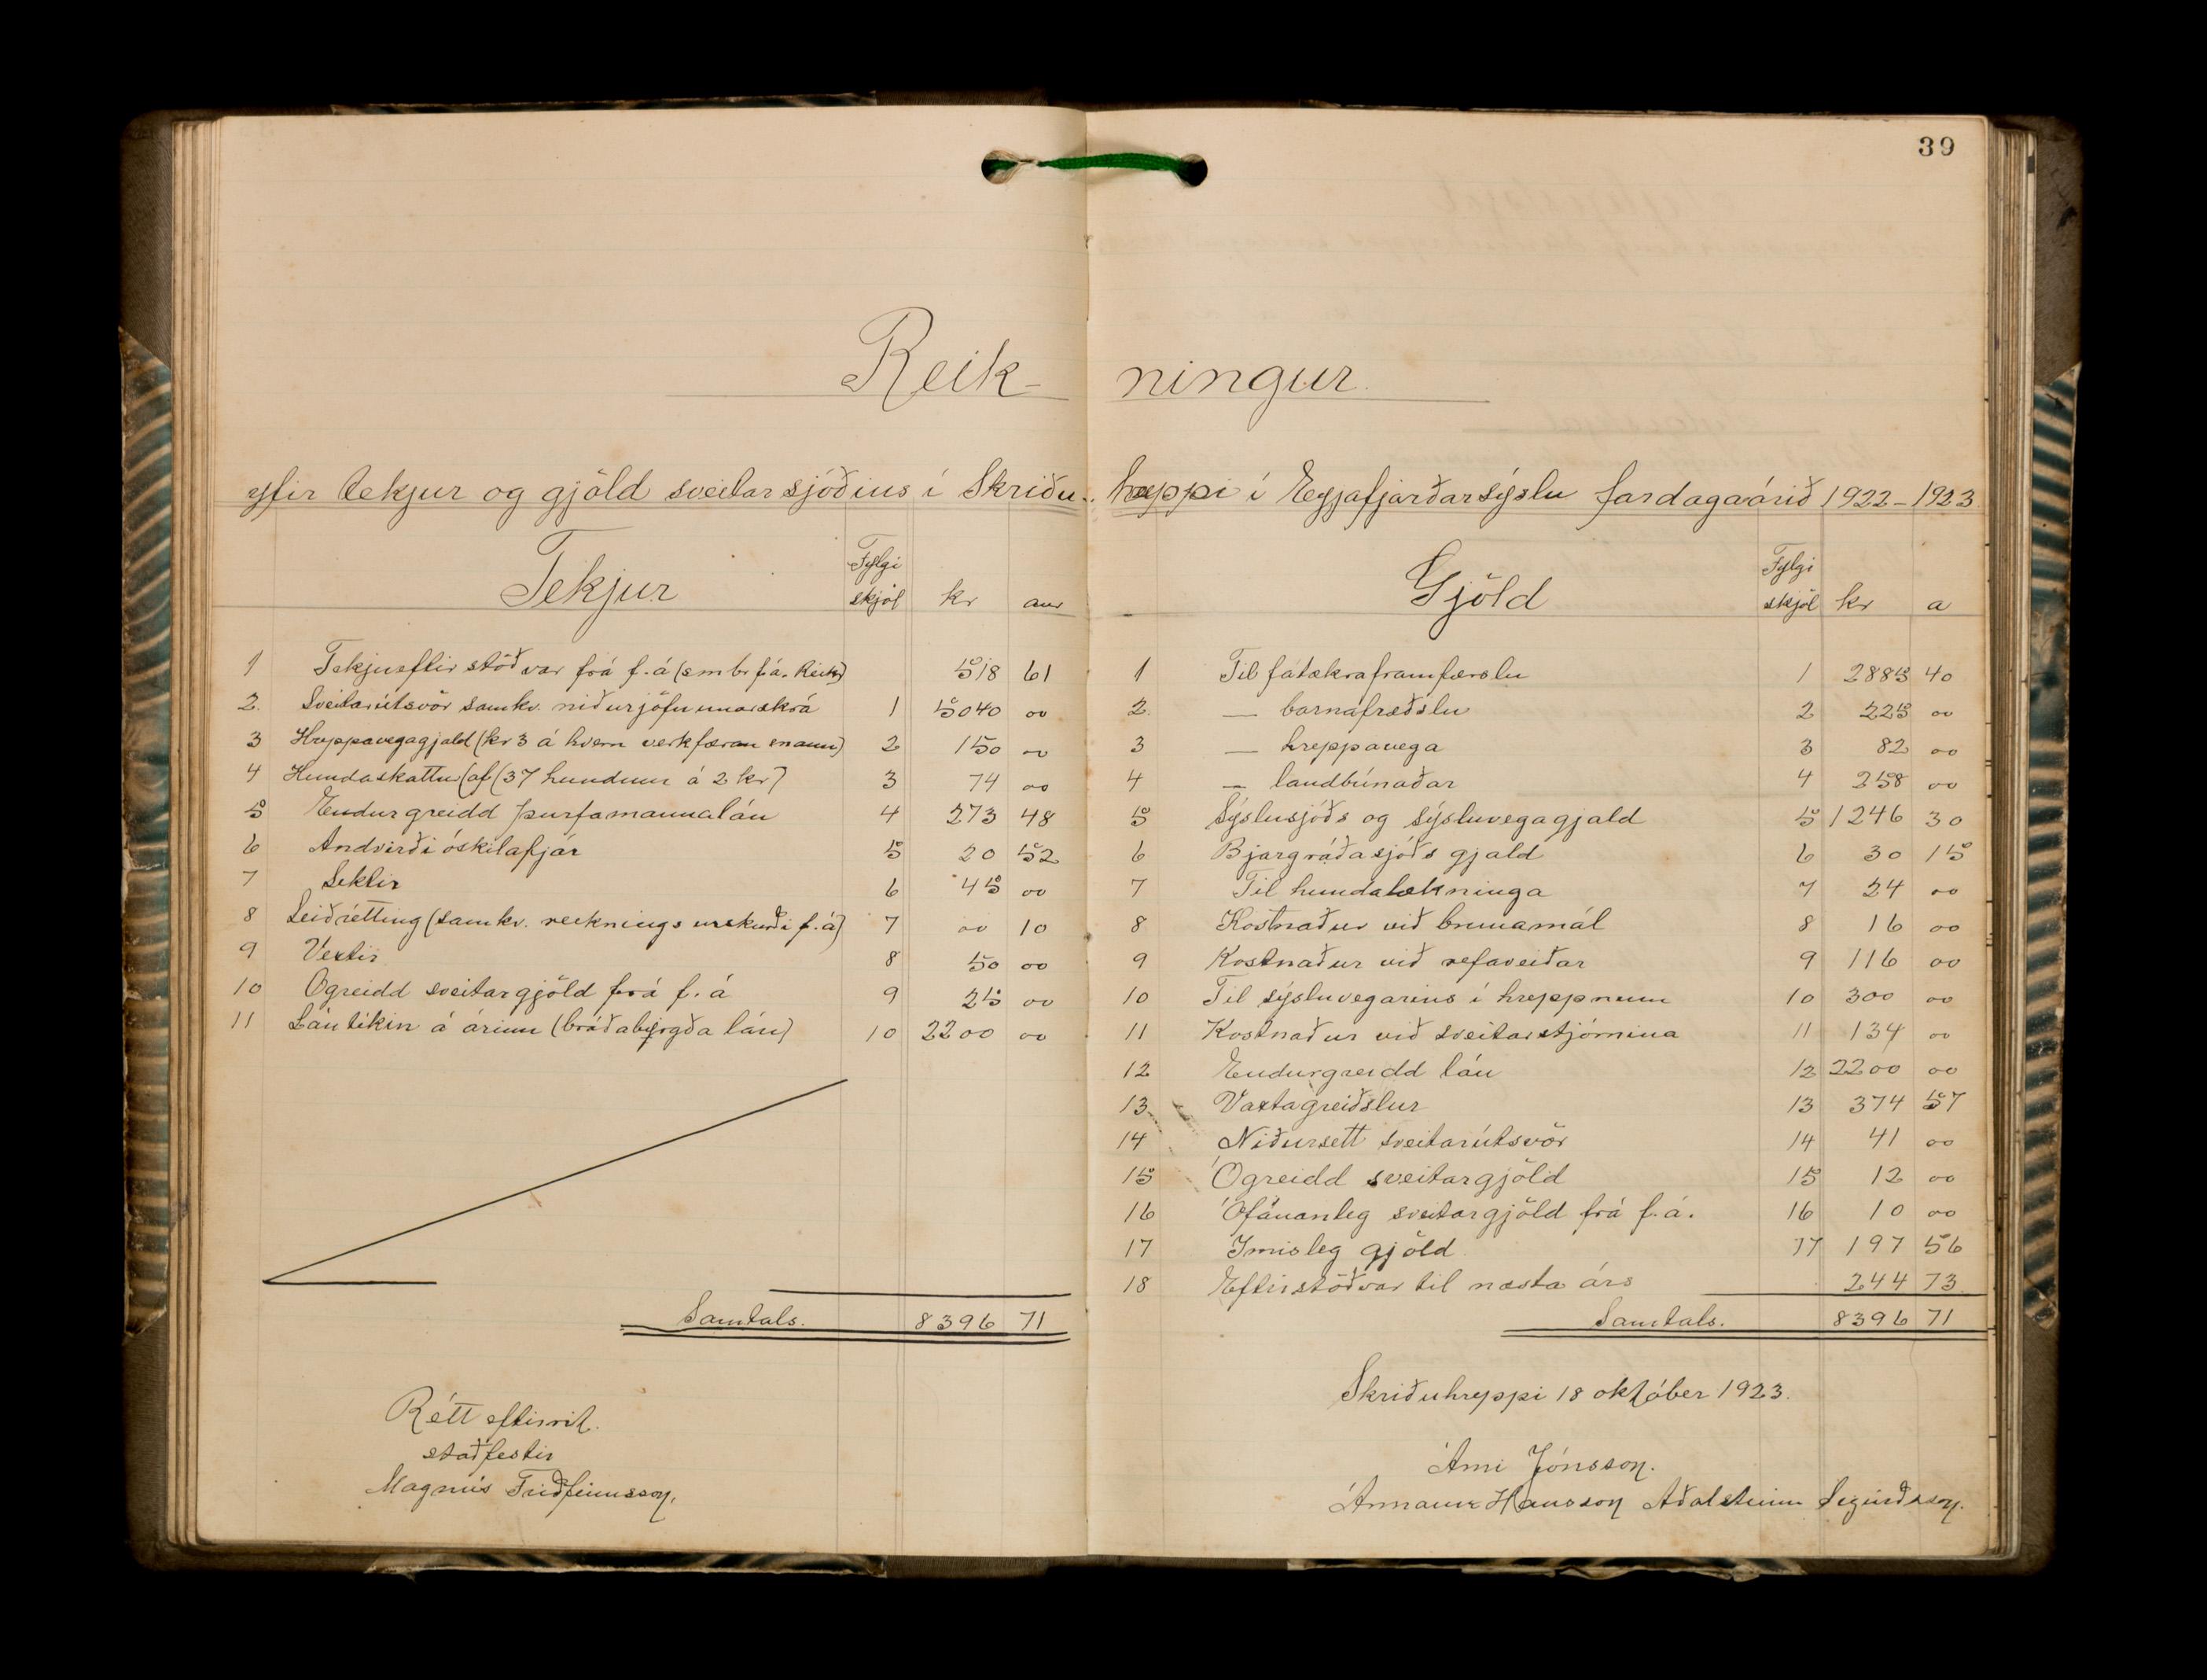 39
Reik- ningur.
yfir tekjur og gjöld sveitarsjóðins í Skriðu- hreppi í Eyjafjarðarsýslu fardagaárið 1922-1923
Tekjur Fylgi skjöl kr aur
1 Tekjueftirstöðvar frá f. á (smbr f.á. Reikn) 518 61
2. Sveitarútsvör samkv. niðurjöfnunarskrá 1 5040 00
3 Hreppavegagjald (kr 3 á hvern verkfæran mann) 2 150 00
4 Hundaskattur (af (37 hundum á 2 kr) 3 74 00
5 Endurgreidd þurfamannalán 4 273 48
6 Andvirði óskilafjár 5 20 52
7 Sektir 6 45 00
8 Leiðrétting (samkv. reiknings urskurði f. á) 7 00 10
9 Vextir 8 50 00
10 Ógreidd sveitargjöld frá f. á 9 25 00
11 Lán tekin á árinu (bráðabyrgða lán) 10 2200 00
Samtals. 8396 71
Rétt eftirrit.
staðfestir
Magnús Friðfinnsson.
Gjöld Fylgi skjöl kr a
1 Til fátækraframfærslu 1 2885 40
2 — barnafræðslu 2 225 00
3 — hreppavega 3 82 00
4 — landbúnaðar 4 258 00
5 Sýslusjóðs og sýsluvegagjald 5 1246 30
6 Bjargráðasjóðs gjald 6 30 15
7 Til hundalækninga 7 24 00
8 Kostnaður við brunamál 8 16 00
9 Kostnaður við refaveiðar 9 116 00
10 Til sýsluvegarins í hreppnum 10 300 00
11 Kostnaður við sveitarstjórnina 11 134 00
12 Endurgreidd lán 12 2200 00
13 Vaxtagreiðslur 13 374 57
14 Niðursett sveitarútsvör 14 41 00
15 Ógreidd sveitargjöld 15 12 00
16 Ófáanleg sveitargjöld frá f. á. 16 10 00
17 Ímisleg gjöld 17 197 56
18 Eftirstöðvar til næsta árs 244 73
Samtals. 8396 71
Skriðuhreppi 18 október 1923.
Árni Jónsson.
Ármann Hansson Aðalsteinn Sigurðsson.